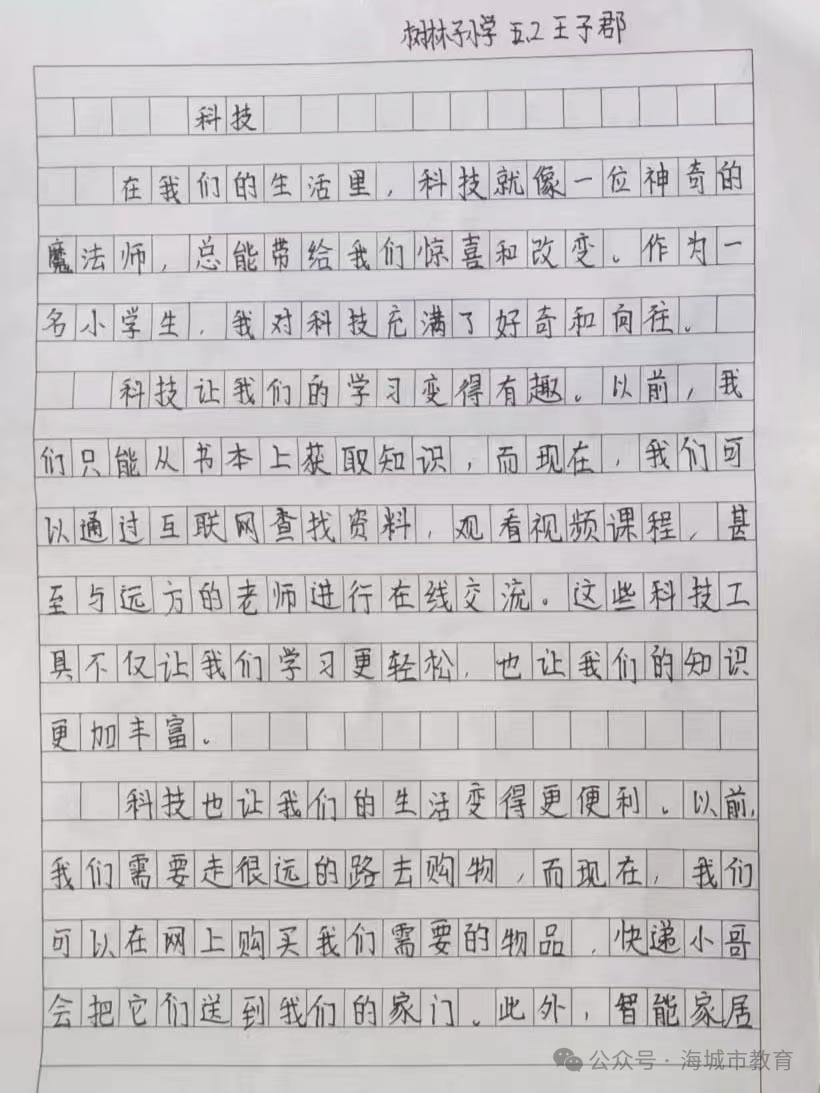 树林子小学 五.2 王子郡
科技
在我们的生活里，科技就像一位神奇的
魔法师，总能带给我们惊喜和改变。作为一
名小学生，我对科技充满了好奇和向往。
科技让我们的学习变得有趣。以前，我
们只能从书本上获取知识，而现在，我们可
以通过互联网查找资料，观看视频课程，甚
至与远方的老师进行在线交流。这些科技工
具不仅让我们学习更轻松，也让我们的知识
更加丰富。
科技也让我们的生活变得更便利。以前，
我们需要走很远的路去购物，而现在，我们
可以在网上购买我们需要的物品，快递小哥
会把它们送到我们的家门。此外，智能家居
公众号·海城市教育